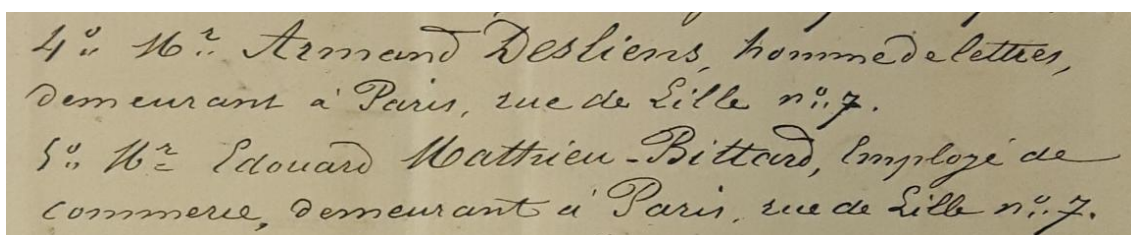 4º. Mr. Armand Desliens, homme de lettres,
demeurant à Paris, rue de Lille nº. 7.
5º. Mr. Edouard Matthieu-Bittard, Employé de
commerce, demeurant à Paris, rue de Lille nº. 7.